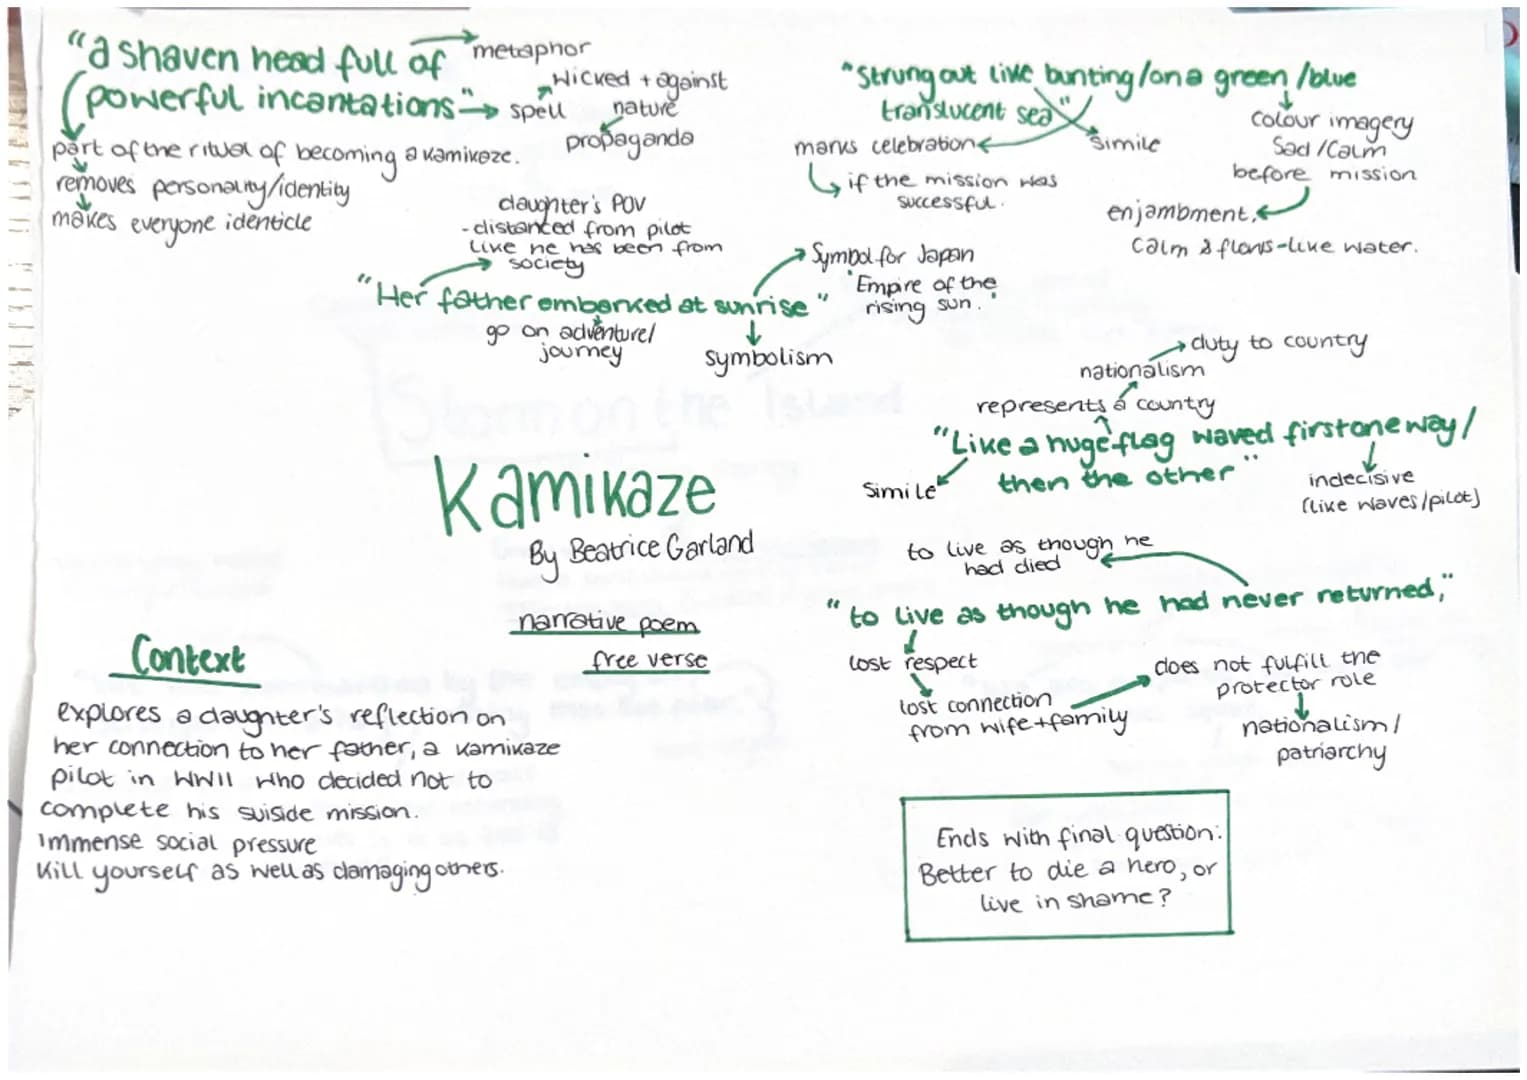 "a shaven head full of
powerful incantations"
metaphor
spell
wicked + against
nature
propaganda
part of the ritual of becoming a kamikaze.
removes personality/identity
makes everyone identicle
"Strung out like bunting/on a green/blue
translucent sea"
marks celebration
if the mission was
successful.
simile
colour imagery
Sad/Calm
before mission
enjambment,
calm & flows-like water.
daughter's POV
-distanced from pilot
like he has been from
society
"Her father embarked at sunrise"
go on adventure/
journey
symbolism
Symbol for Japan
'Empire of the
rising sun.'
duty to country
nationalism
represents a country
"Like a huge flag waved first one way/
then the other"
Simile
indecisive
(like waves/pilot)
Kamikaze
By Beatrice Garland
narrative poem
free verse
to live as though he
had died
"to live as though he had never returned,"
lost respect
lost connection
from wife+family
does not fulfill the
protector role
nationalism/
patriarchy
Context
explores a daughter's reflection on
her connection to her father, a kamikaze
pilot in WWII who decided not to
complete his suiside mission.
Immense social pressure
Kill yourself as well as damaging others.
Ends with final question:
Better to die a hero, or
live in shame?
Storm on the Island